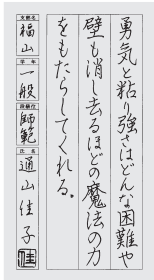 勇気と粘り強さはどんな困難や
壁も消し去るほどの魔法の力
をもたらしてくれる。
支部名
福山
学年
一般
段級位
師範
氏名
通山佳子
佳